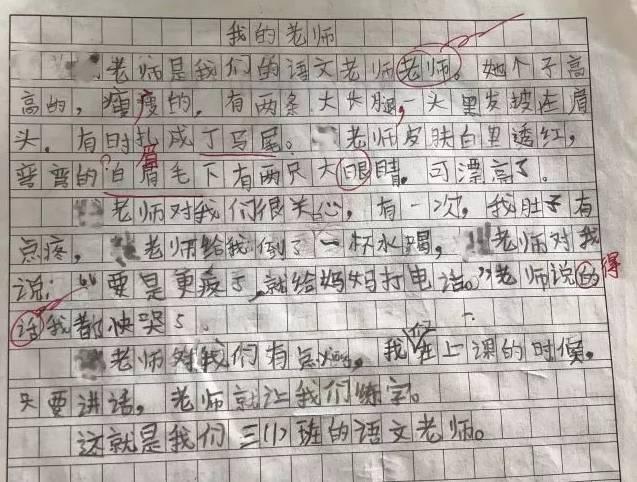 我的老师
老师是我们的语文老师老师。她个子高
高的，瘦瘦的，有两条大长腿，一头黑发披在肩
头。有时扎成丁马尾。老师皮肤白里透红，
弯弯的白眉毛下有两只大眼睛，可漂亮了。
老师对我们很关心，有一次，我肚子有
点疼，老师给我倒了一杯水喝，老师对我
说：“要是更疼了，就给妈妈打电话。”老师说的得
话我都快哭了。
老师对我们有点，我们在上课的时候，
只要讲话，老师就让我们练字。
这就是我们三(1)班的语文老师。